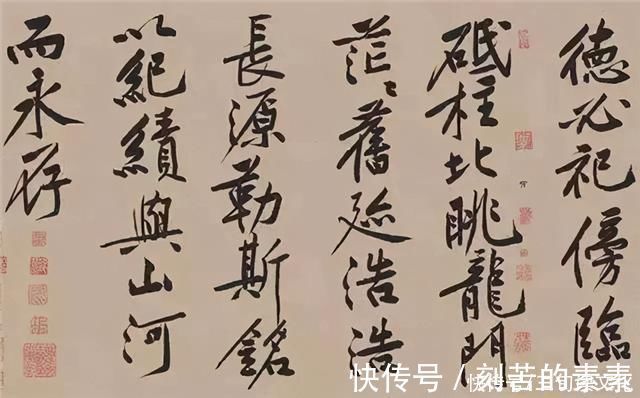 德必祀傍臨
砥柱北眺龍門
茫々舊迹浩浩
長源勒斯銘
以紀績與山河
而永存
快传号 / 刻苦的